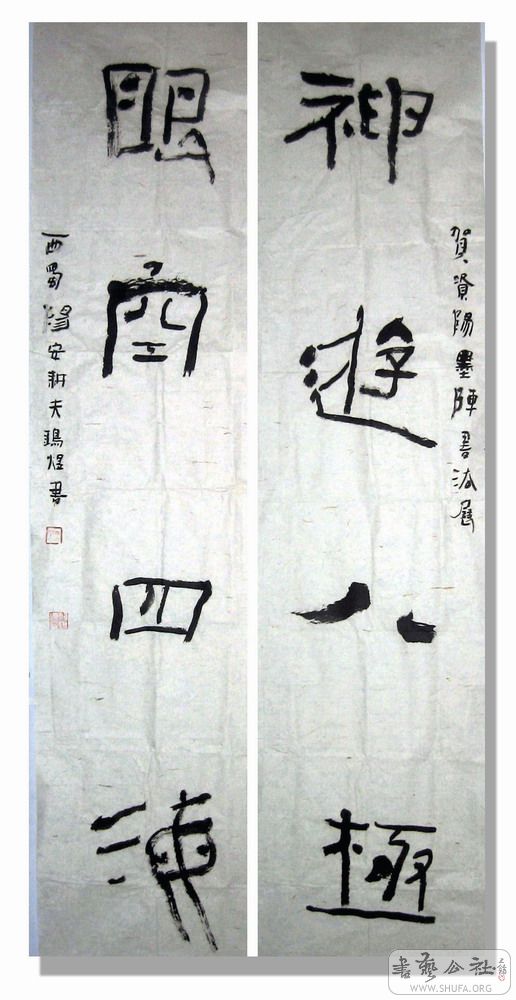 賀資陽墨陣書法展
神遊八極
眼空四海
西蜀
安
夫
書
書藝公社
WWW.SHUFA.ORG